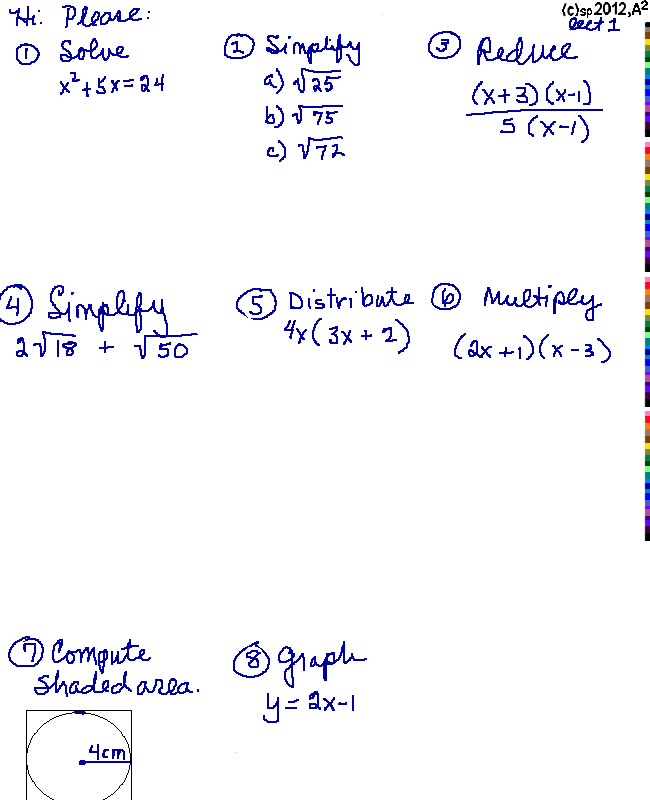 Hi. Please:
(c)sp2012,A²
Lect 1
① Solve
x²+5x=24
② Simplify
a) √25
b) √75
c) √72
③ Reduce
(x+3)(x-1)
5(x-1)
④ Simplify
2√18 + √50
⑤ Distribute
4x(3x+2)
⑥ Multiply
(2x+1)(x-3)
⑦ Compute
shaded area.
4cm
⑧ Graph
y=2x-1